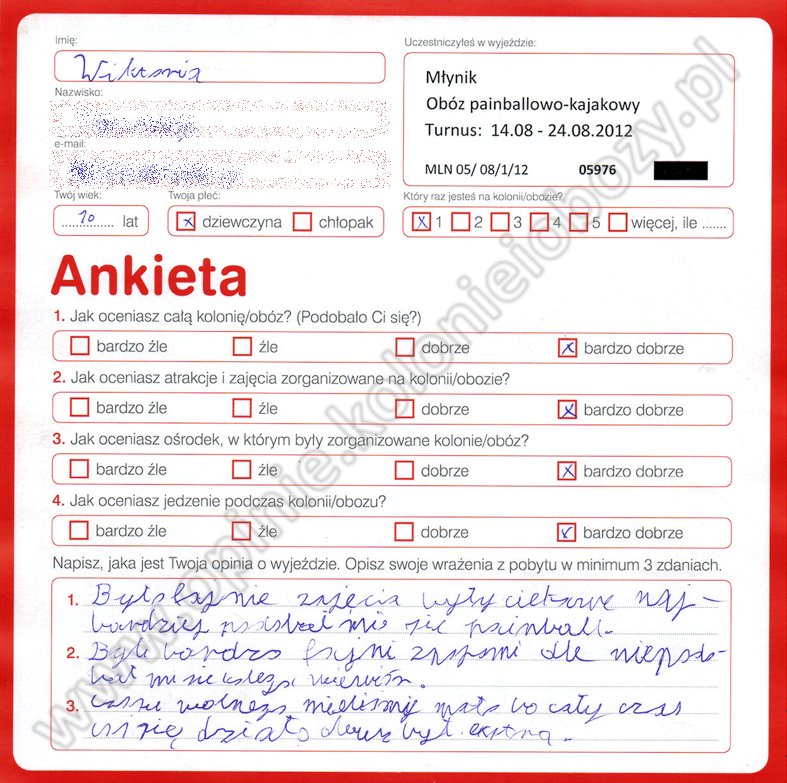 Imię:
Wiktoria
Uczestniczyłeś w wyjeździe:
Młynik
Obóz painballowo-kajakowy
Turnus: 14.08 - 24.08.2012
MLN 05/ 08/1/12 05976
Nazwisko:
e-mail:
Twój wiek: Twoja płeć: Który raz jesteś na kolonii/obozie?
10 lat x dziewczyna chłopak x 1 2 3 4 5 więcej, ile .......
Ankieta
1. Jak oceniasz całą kolonię/obóz? (Podobało Ci się?)
bardzo źle źle dobrze x bardzo dobrze
2. Jak oceniasz atrakcje i zajęcia zorganizowane na kolonii/obozie?
bardzo źle źle dobrze x bardzo dobrze
3. Jak oceniasz ośrodek, w którym były zorganizowane kolonie/obóz?
bardzo źle źle dobrze x bardzo dobrze
4. Jak oceniasz jedzenie podczas kolonii/obozu?
bardzo źle źle dobrze x bardzo dobrze
Napisz, jaka jest Twoja opinia o wyjeździe. Opisz swoje wrażenia z pobytu w minimum 3 zdaniach.
1. Było fajnie zajęcia były ciekawe naj-
bardziej podobał mi się painball.
2. Byli bardzo fajni ale niepodo-
bał mi się
3. Czasu wolnego mieliśmy mało bo cały czas
coś się działo obóz był ekstra.
www.opinie.kolonieiobozy.pl